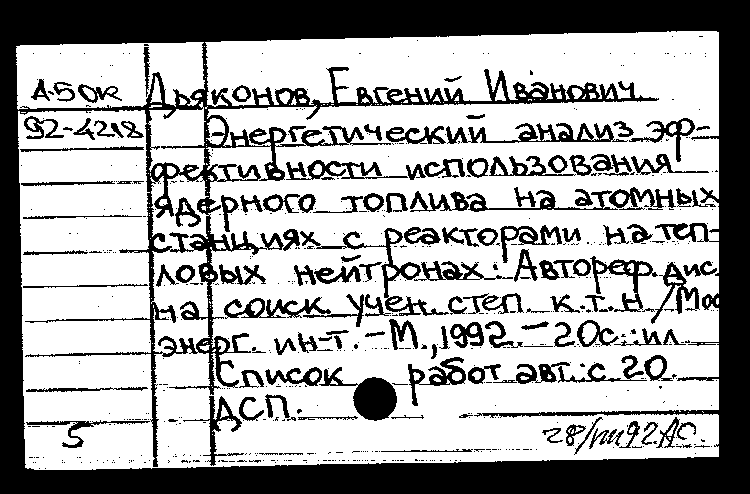 А-50к Дьяконов, Евгений Иванович.
92-4218 Энергетический анализ эф-
фективности использования
ядерного топлива на атомных
станциях с реакторами на теп-
ловых нейтронах: Автореф. дис.
на соиск. учен. степ. к.т.н /Мос
энерг. ин-т. - М., 1992. - 20с.:ил
Список работ авт.: с. 20.
ДСП.
5